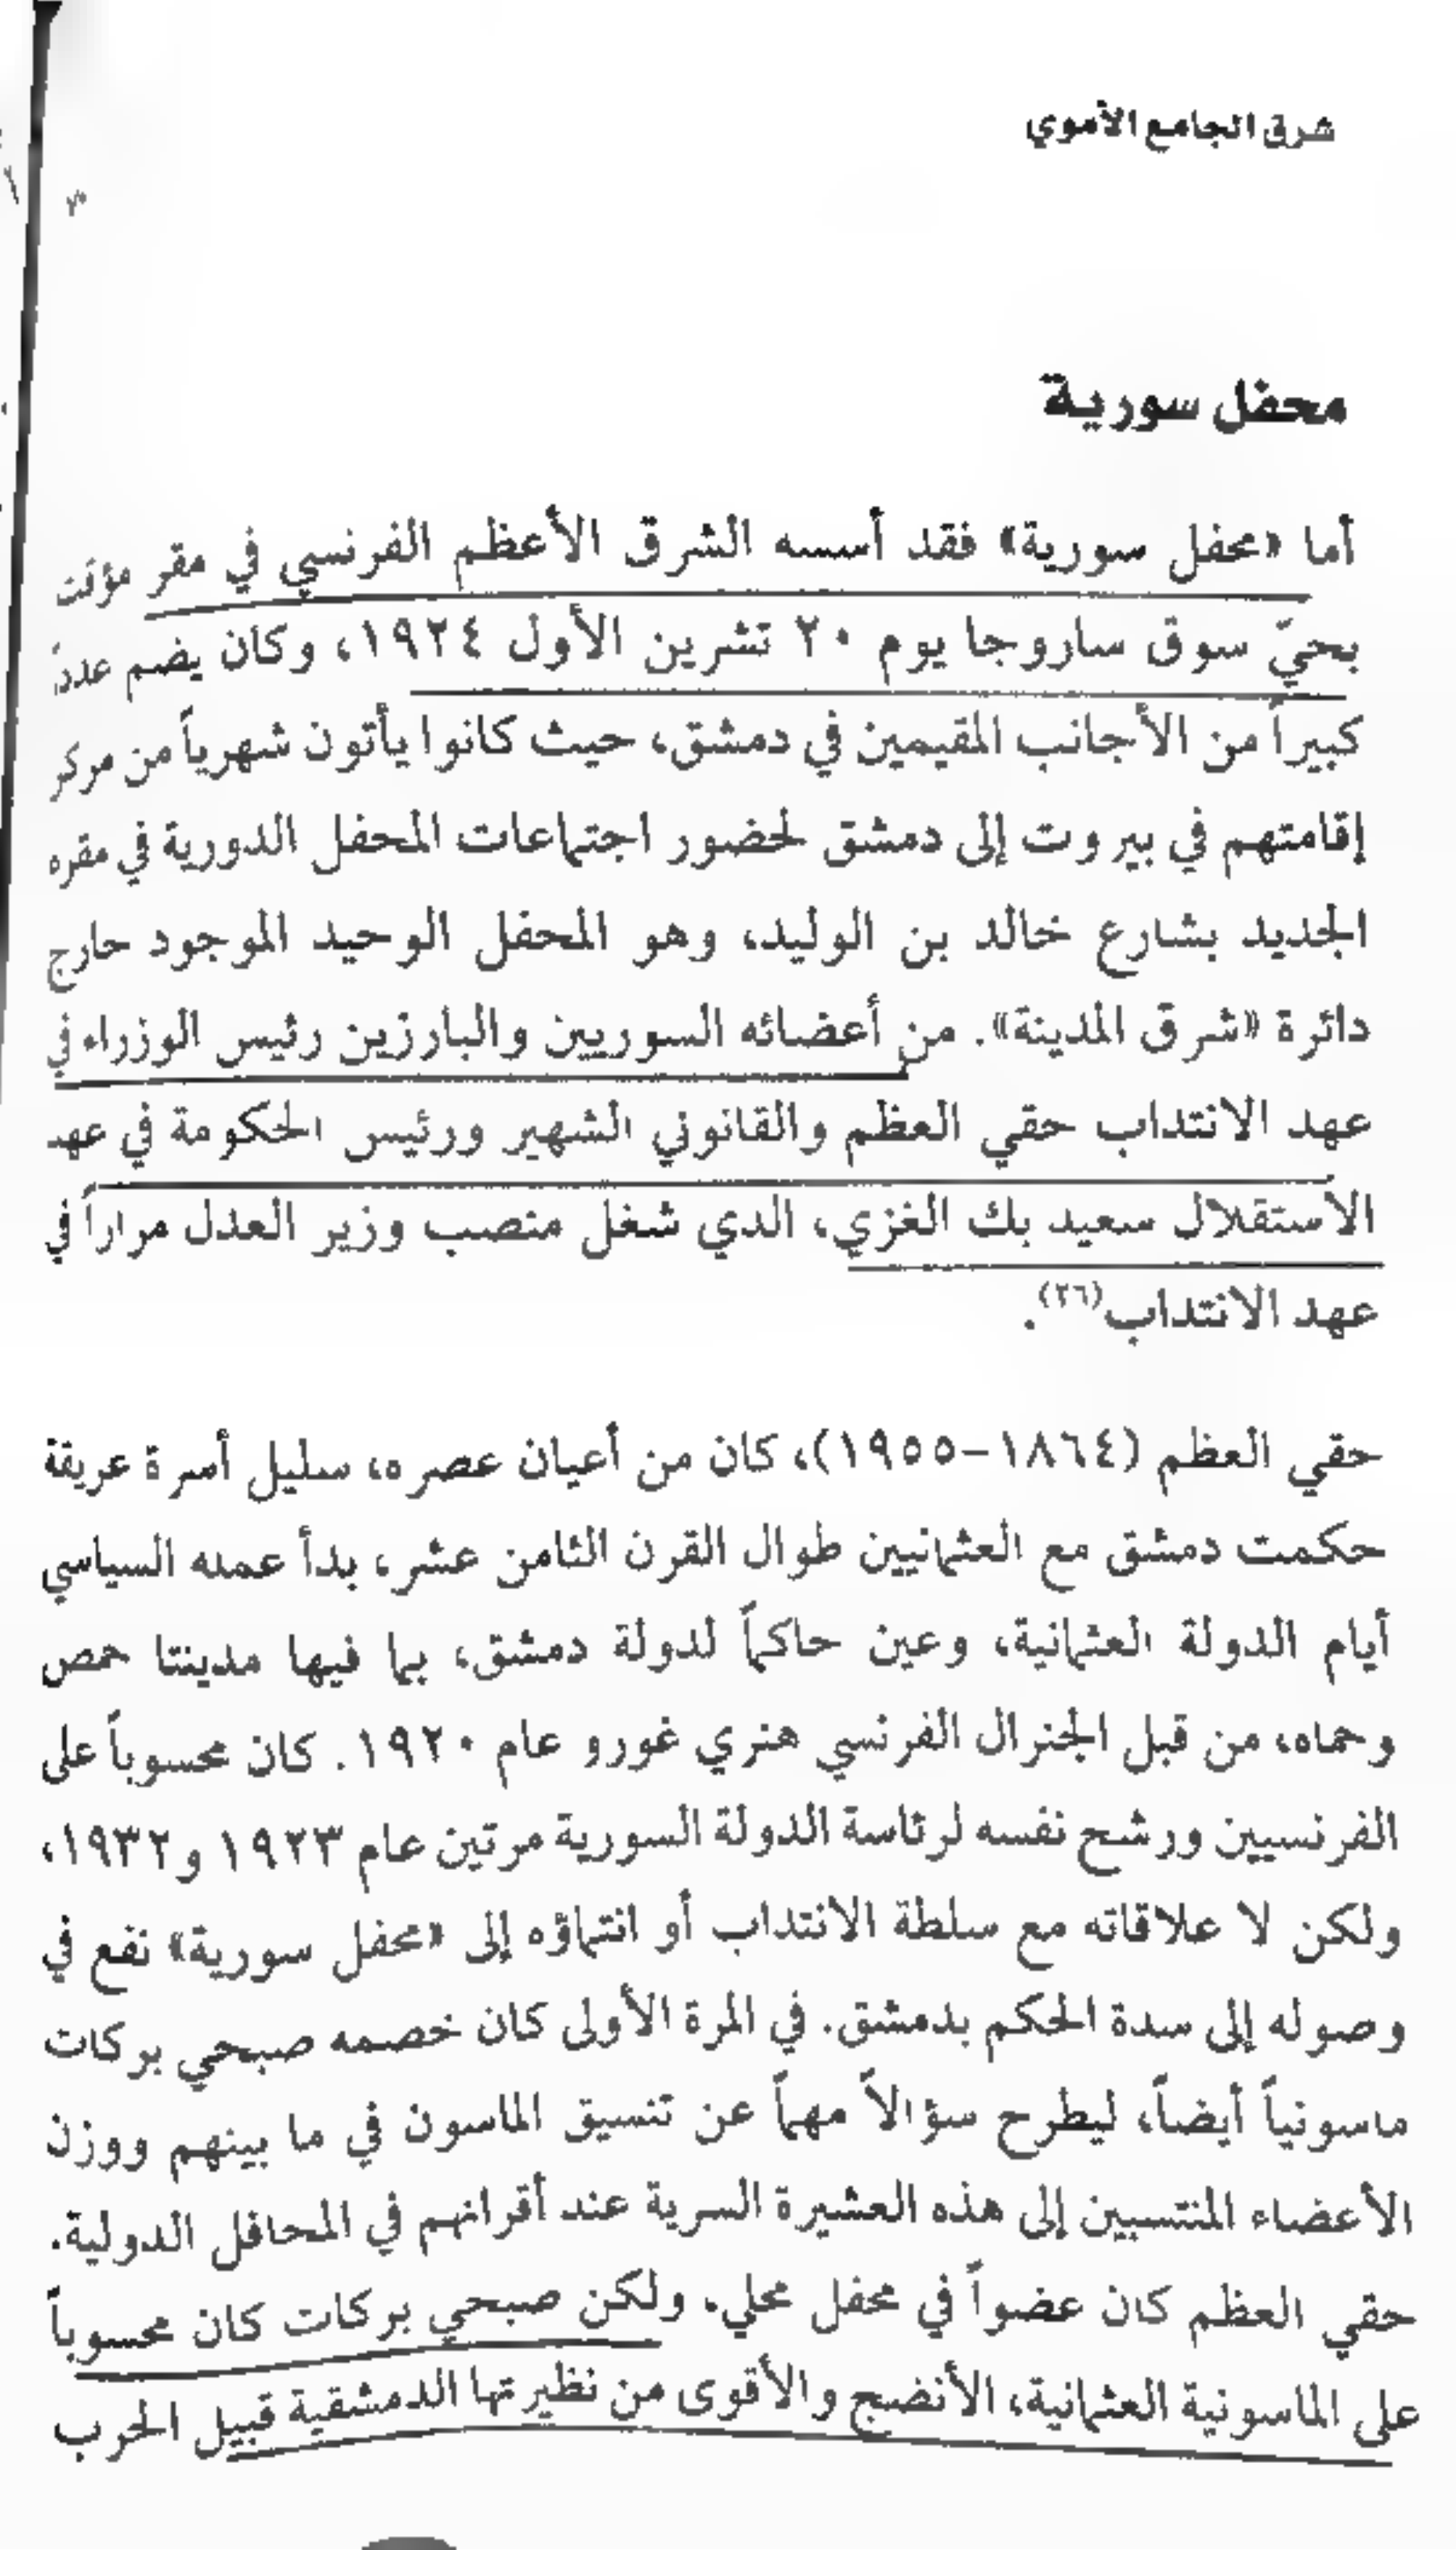 شرق الجامع الأموي
محفل سورية
أما «محفل سورية» فقد أسسه الشرق الأعظم الفرنسي في مقر مؤقت
بحيّ سوق ساروجا يوم ٢٠ تشرين الأول ١٩٢٤، وكان يضم
كبيراً من الأجانب المقيمين في دمشق، حيث كانوا يأتون شهرياً من مركز
إقامتهم في بيروت إلى دمشق لحضور اجتماعات المحفل الدورية في مقره
الجديد بشارع خالد بن الوليد، وهو المحفل الوحيد الموجود خارج
دائرة «شرق المدينة». من أعضائه السوريين والبارزين رئيس الوزراء في
عهد الانتداب حقي العظم والقانوني الشهير ورئيس الحكومة في عهد
الاستقلال سعيد بك الغزي، الذي شغل منصب وزير العدل مراراً في
عهد الانتداب(٢٦).
حقي العظم (١٨٦٤-١٩٥٥)، كان من أعيان عصره، سليل أسرة عريقة
حكمت دمشق مع العثمانيين طوال القرن الثامن عشر، بدأ عمله السياسي
أيام الدولة العثمانية، وعين حاكماً لدولة دمشق، بما فيها مدينتا حمص
وحماه، من قبل الجنرال الفرنسي هنري غورو عام ١٩٢٠. كان محسوباً على
الفرنسيين ورشح نفسه لرئاسة الدولة السورية مرتين عام ١٩٢٣ و١٩٣٢،
ولكن لا علاقاته مع سلطة الانتداب أو انتماؤه إلى «محفل سورية» نفع في
وصوله إلى سدة الحكم بدمشق. في المرة الأولى كان خصمه صبحي بركات
ماسونياً أيضاً، ليطرح سؤالاً مهماً عن تنسيق الماسون في ما بينهم ووزن
الأعضاء المنتسبين إلى هذه العشيرة السرية عند أقرانهم في المحافل الدولية.
حقي العظم كان عضواً في محفل محلي. ولكن صبحي بركات كان محسوباً
على الماسونية العثمانية، الأنضج والأقوى من نظيرتها الدمشقية قبيل الحرب